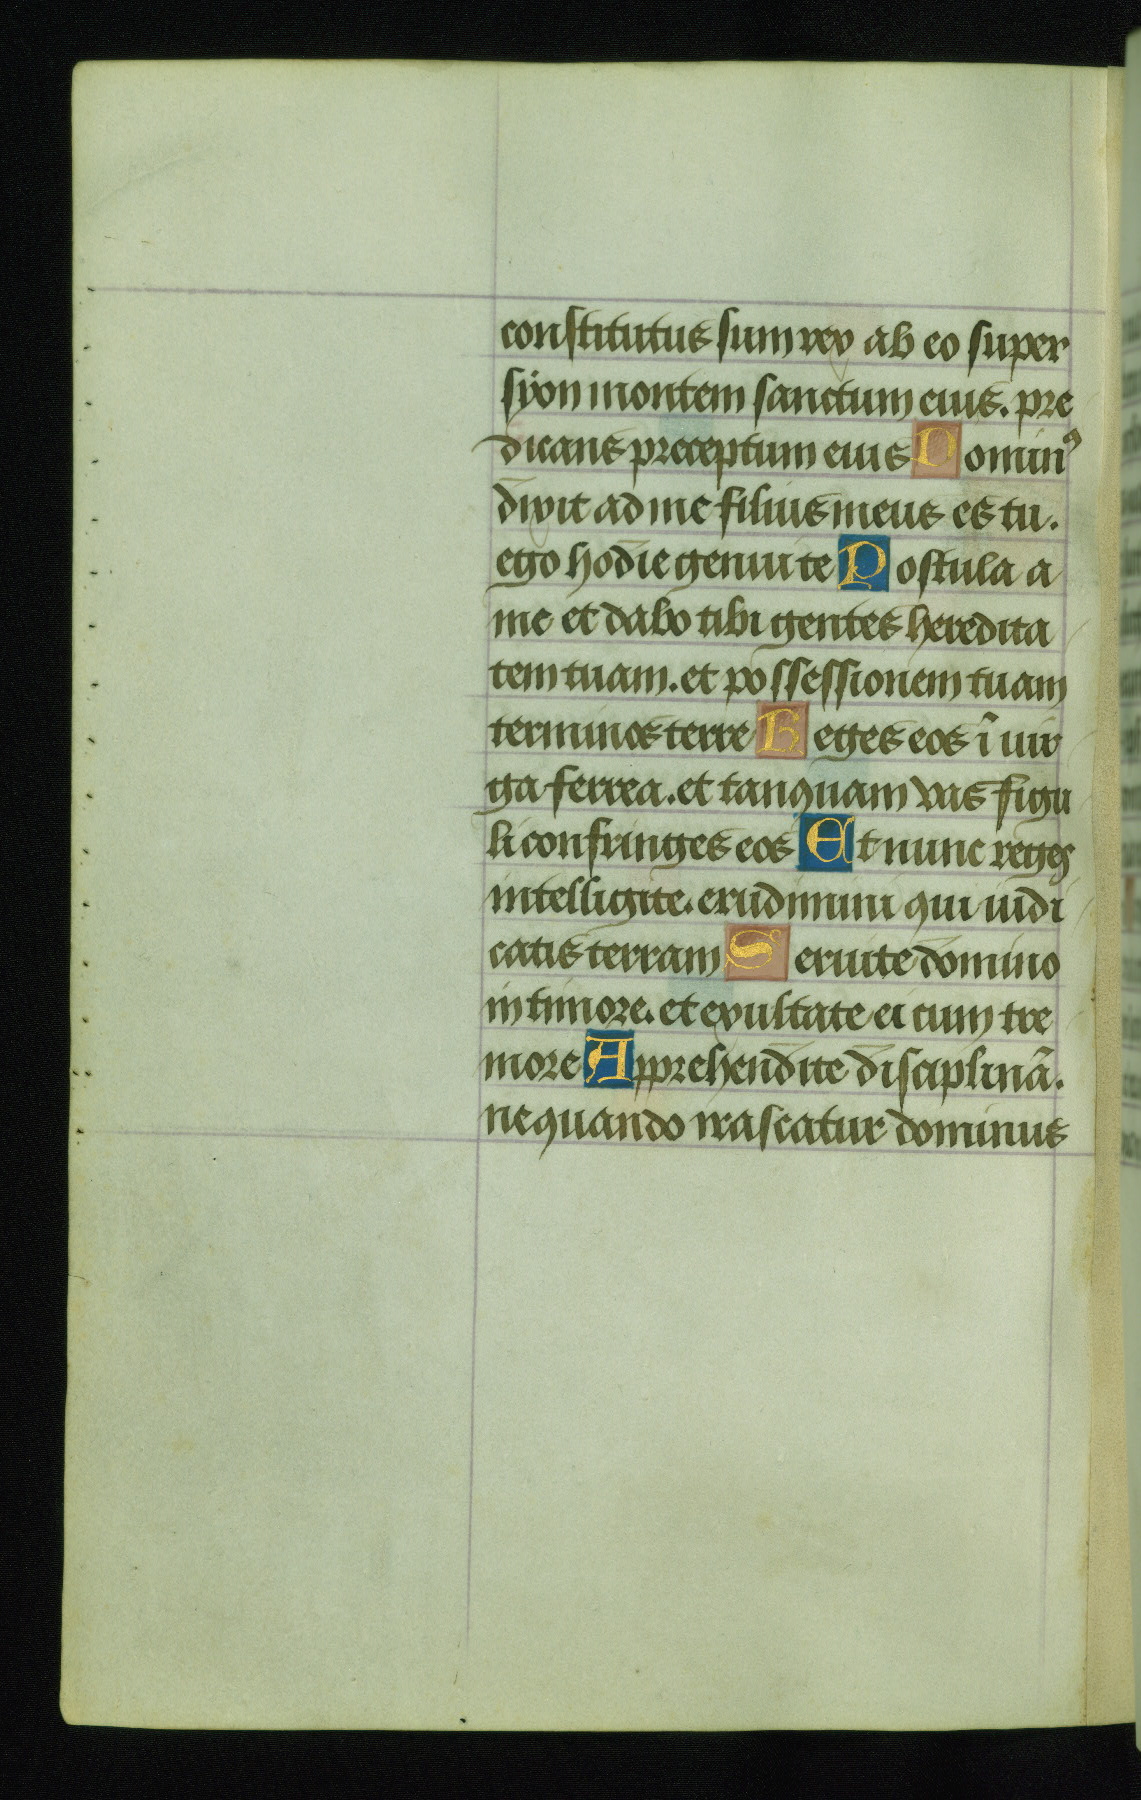 constitutus sum rex ab eo super
syon montem sanctum eius. pre
dicans preceptum eius Dominꝰ
dixit ad me filius meus es tu.
ego hodie genui te Postula a
me et dabo tibi gentes heredita
tem tuam. et possessionem tuam
terminos terre Reges eos ī uir
ga ferrea. et tanquam vas figu
li confringes eos Et nunc reges
intelligite. erudimini qui iudi
catis terram Seruite domino
in timore. et exultate ei cum tre
more Apprehendite disciplinā.
ne quando irascatur dominus